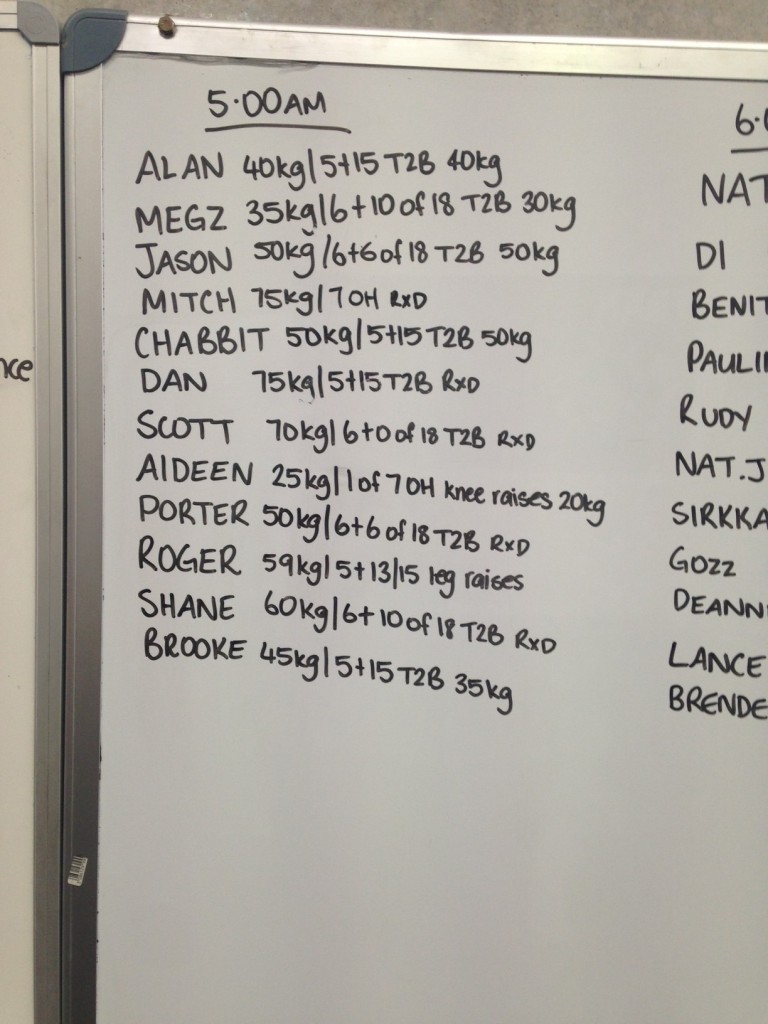 5.00AM
ALAN 40kg/5+15 T2B 40kg
MEGZ 35kg/6+10 of 18 T2B 30kg
JASON 50kg/6+6 of 18 T2B 50kg
MITCH 75kg/7 OH RxD
CHABBIT 50kg/5+15 T2B 50kg
DAN 75kg/5+15 T2B RxD
SCOTT 70kg/6+0 of 18 T2B RxD
AIDEEN 25kg/1 of 7 OH knee raises 20kg
PORTER 50kg/6+6 of 18 T2B RxD
ROGER 59kg/5+13/15 leg raises
SHANE 60kg/6+10 of 18 T2B RxD
BROOKE 45kg/5+15 T2B 35kg
6.0
NAT
DI
BENIT
PAULI
RUDY
NAT.J
SIRKKA
GOZZ
DEANN
LANCE
BRENDE